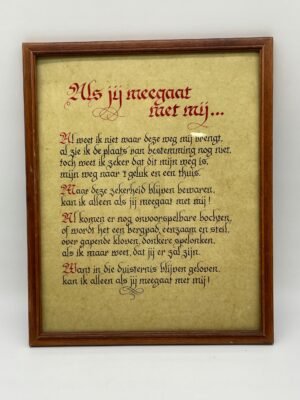 Als jij meegaat
met mij...
Al weet ik niet waar deze weg mij brengt,
al zie ik de plaats van bestemming nog niet,
toch weet ik zeker dat dit mijn weg is,
mijn weg naar 't geluk en een thuis.
Maar deze zekerheid blijven bewaren,
kan ik alleen als jij meegaat met mij!
Al komen er nog onvoorspelbare bochten,
of wordt het een bergpad, eenzaam en steil,
over gapende kloven, donkere spelonken,
als ik maar weet, dat jij er zal zijn.
Want in die duisternis blijven geloven,
kan ik alleen als jij meegaat met mij!